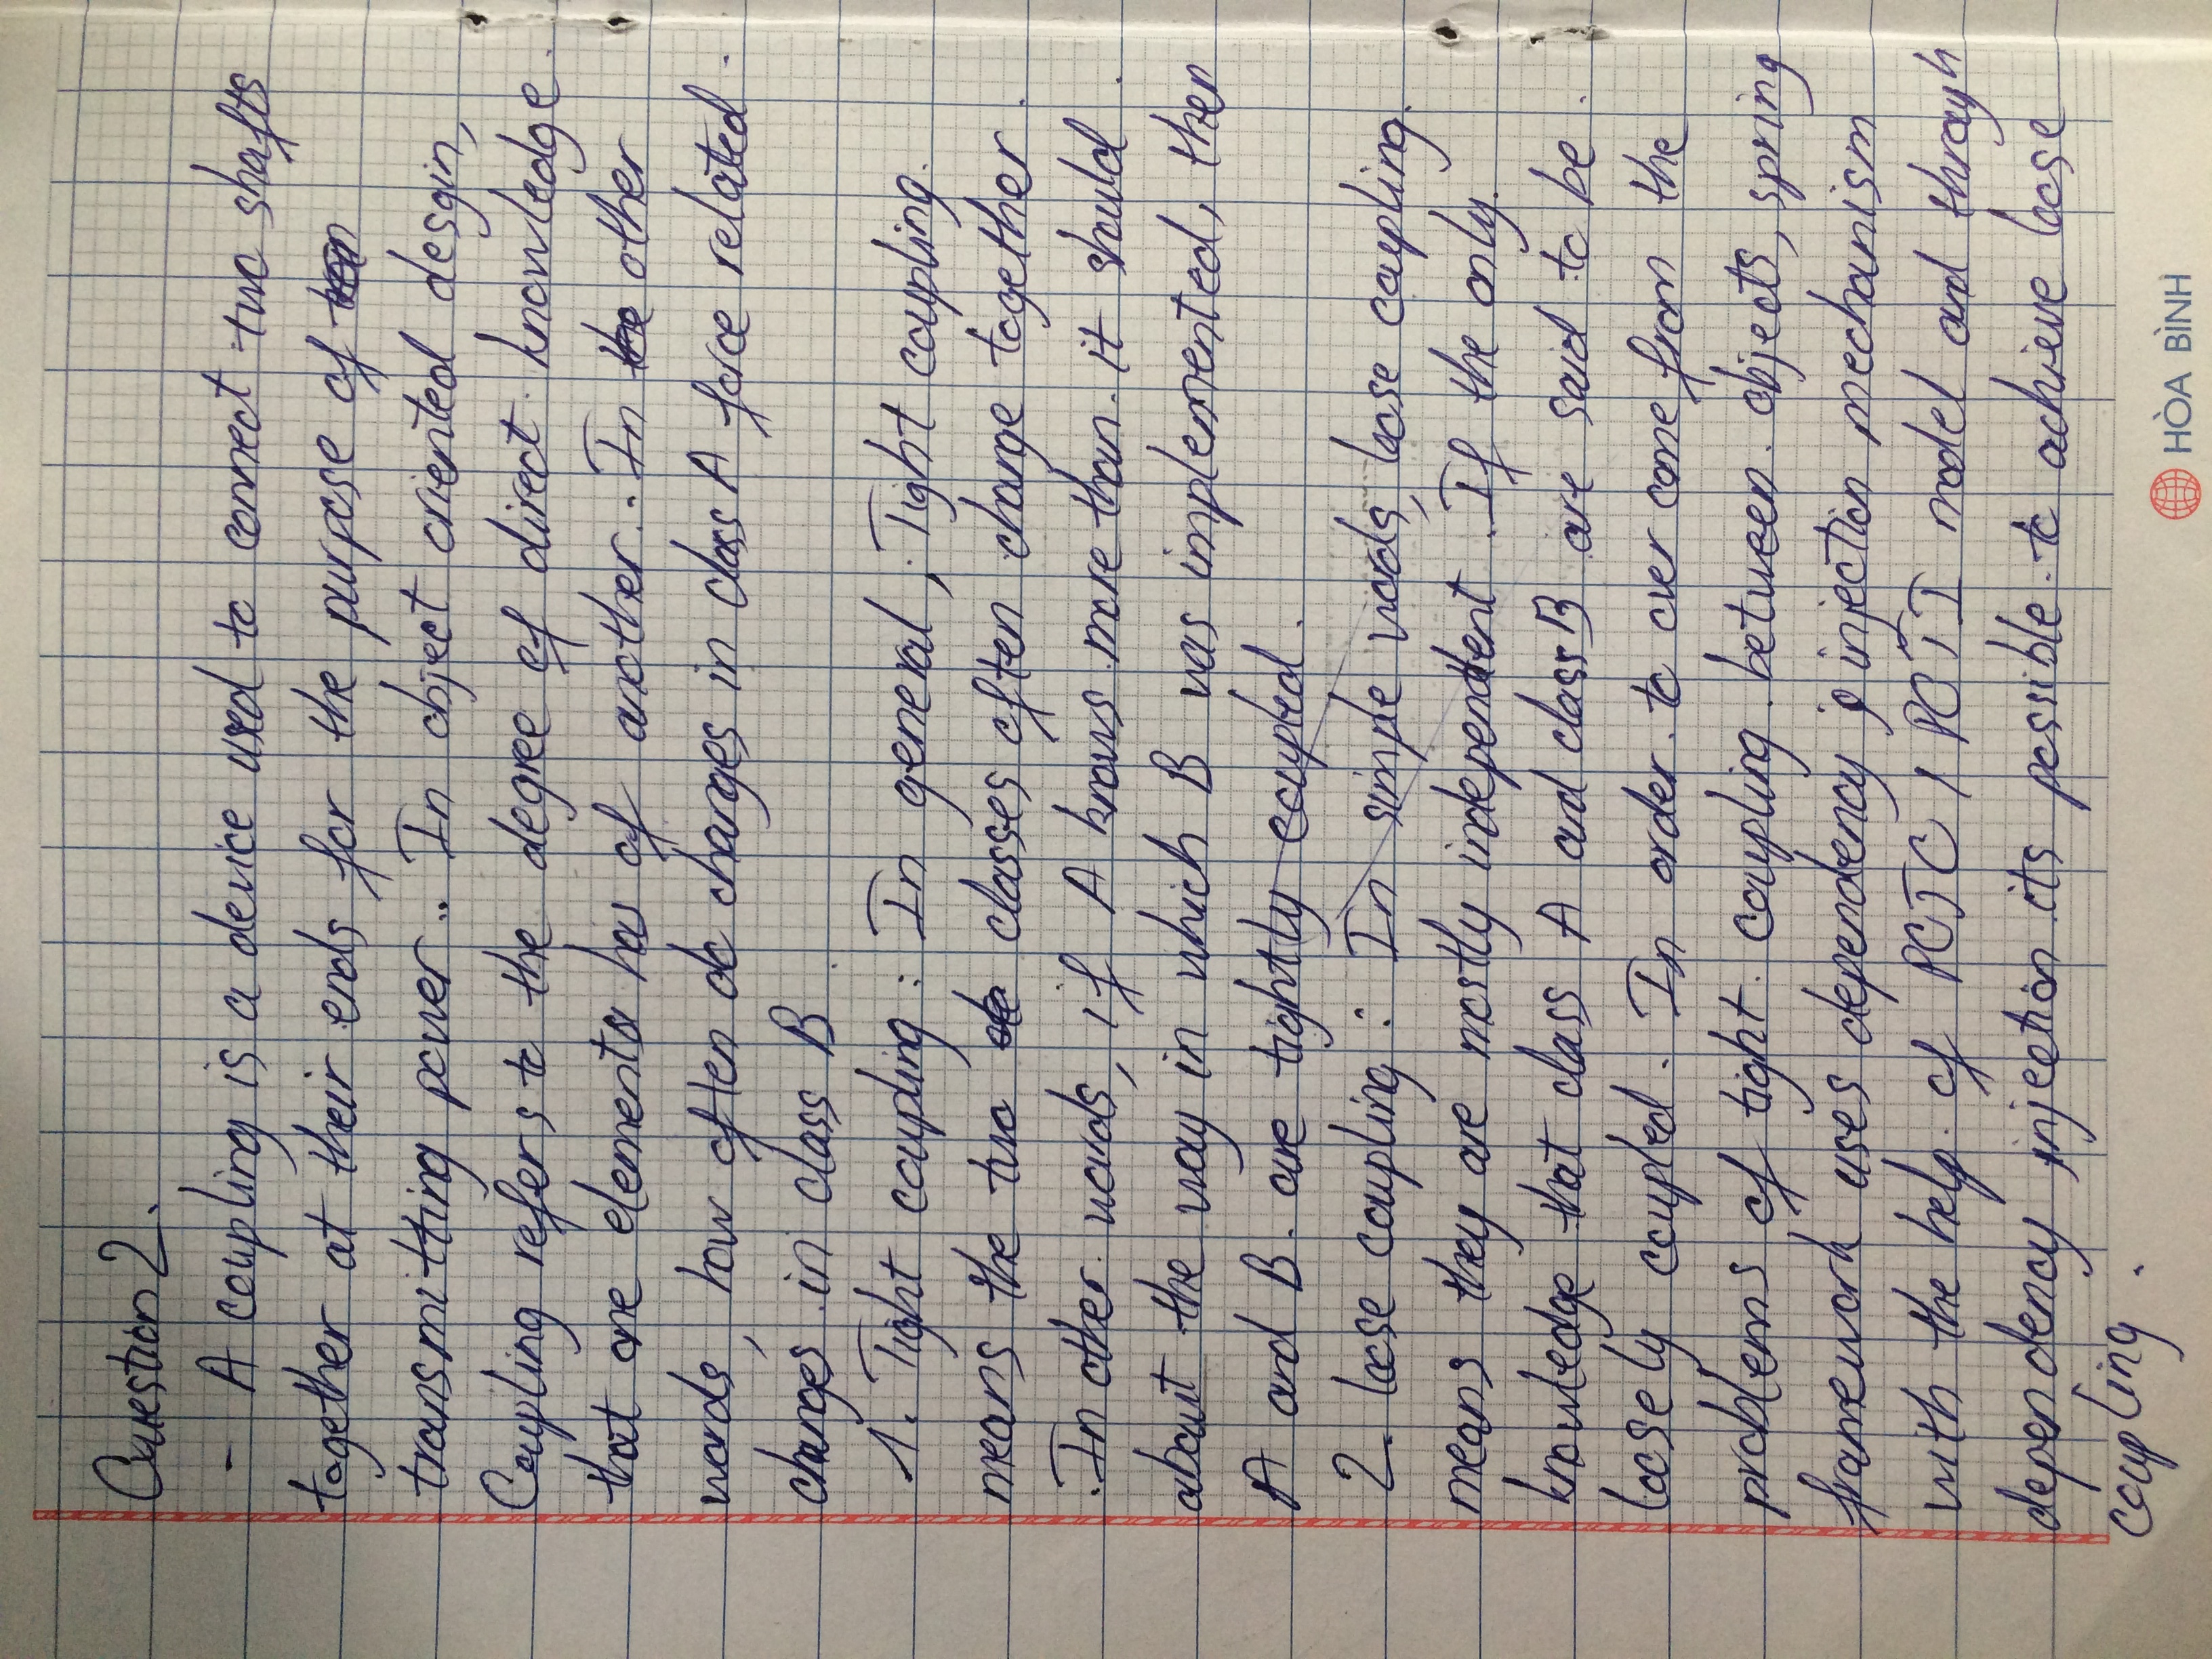 Question 2.
- A coupling is a device used to connect two shafts
together at their ends for the purpose of
transmitting power.. In object oriented desgin,
Coupling refers to the degree of direct knowledge
that one elements has of another. In the other
words, how often do changes in class A force related
changes in class B.
1. Tight coupling : In general, Tight coupling
means the two classes often change together.
In other words, if A knows more than it should
about the way in which B was implemented, then
A and B are tightly coupled.
2. loose coupling : In simple words, loose coupling
means they are mostly independent. If the only
knowledge that class A and class B are said to be
loosely coupled. In order to over come from the
problems of tight coupling between objects, spring
framework uses dependency injection mechanism
with the help of POJO / POJI model and through
dependency injection its possible to achieve loose
coupling.
HÒA BÌNH